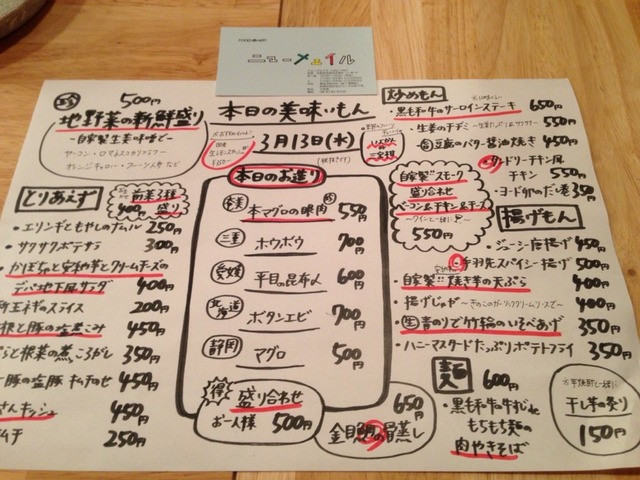 ニューメュイル
本日の美味いもん
3月13日(水)
500円
地野菜の新鮮盛り
~自家製生姜味噌で~
とりあえず
前菜3種盛り
400円
・エリンギともやしのナムル 250円
・サクサクポテサラ 300円
・かぼちゃと安納芋とクリームチーズの
デパ地下風サラダ 400円
玉ネギのスライス 200円
根と豚の塩煮こみ 450円
と根菜の煮っころがし 350円
450円
さんキッシュ 450円
ムチ 250円
本日のお造り
本マグロの眼肉 550円
三重 ホウボウ 700円
愛媛 平目の昆布〆 600円
北海道 ボタンエビ 700円
静岡 マグロ 500円
得 盛り合わせ
お一人様 500円
650円
金目鯛の骨蒸し
炒めもん
・黒毛和牛のサーロインステーキ 650円
・生姜のチヂミ 550円
豆腐のバター醤油焼き 450円
・タンドリーチキン風
チキン 550円
・ヨード卵のだし巻 350円
自家製スモーク
盛り合わせ
ベーコン&チキン&チーズ
~ワインと一緒に~
550円
揚げもん
・ジューシー唐揚げ 450円
・手羽先スパイシー揚げ 500円
・自家製!!焼き芋の天ぷら 400円
・揚げじゃが ~きのこのガーリッククリームソースで~ 400円
・生青のりで竹輪のいそべあげ 350円
・ハニーマスタードたっぷりポテトフライ 350円
麺 600円
・黒毛和牛の牛すじと
もちもち麺の
肉やきそば
干し芋の炙り
150円